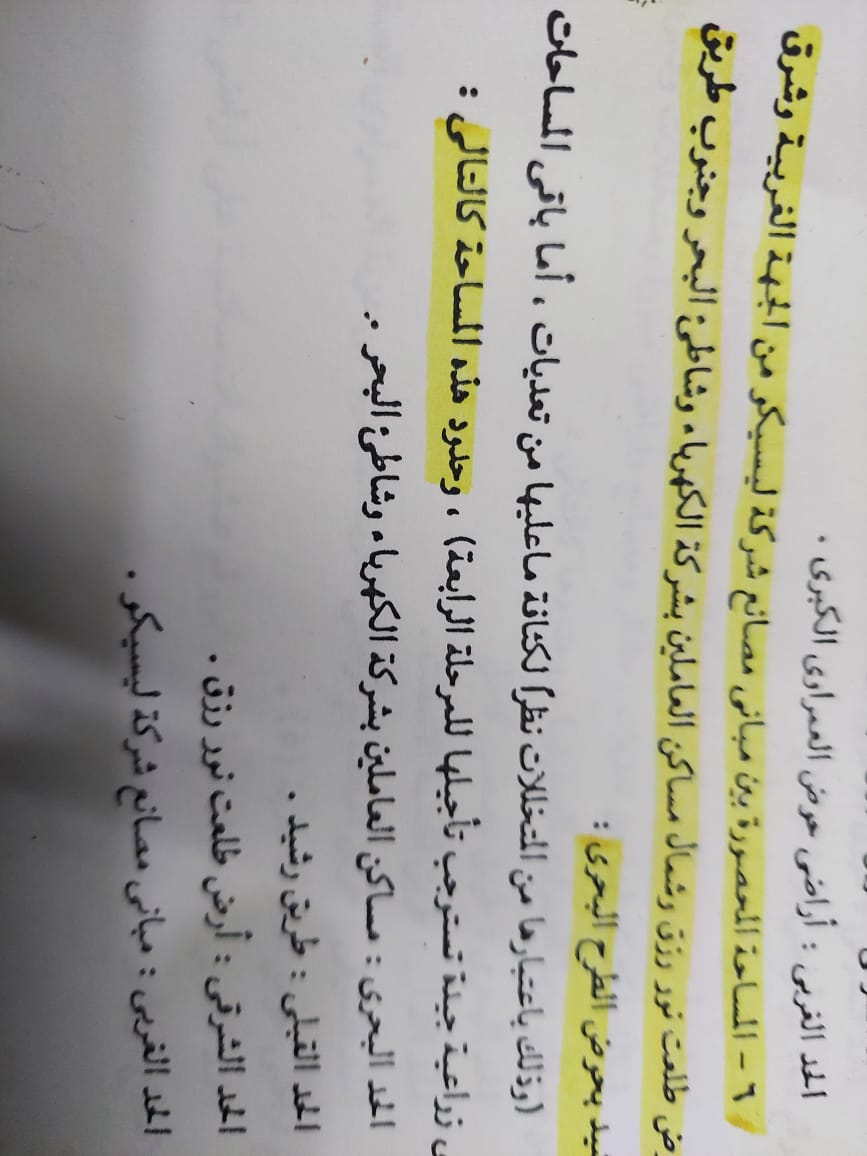 الحد الغربى : أراضى حوض العمراوى الكبرى .
٦ - المساحة المحصورة بين مبانى مصانع شركة ليسيكو من الجهة الغربية وشرق
طلعت نور رزق وشمال مساكن العاملين بشركة الكهرباء وشاطئ البحر وجنوب طريق
بحوض الطرح البحرى :
(وذلك باعتبارها من المتخللات نظراً لكثافة ماعليها من تعديات ، أما باقى المساحات
زراعية جيدة تستوجب تأجيلها للمرحلة الرابعة) ، وحدود هذه المساحة كالتالى :
الحد البحرى : مساكن العاملين بشركة الكهرباء وشاطئ البحر .
الحد القبلى : طريق رشيد .
الحد الشرقى : أرض طلعت نور رزق .
الحد الغربى : مبانى مصانع شركة ليسيكو .